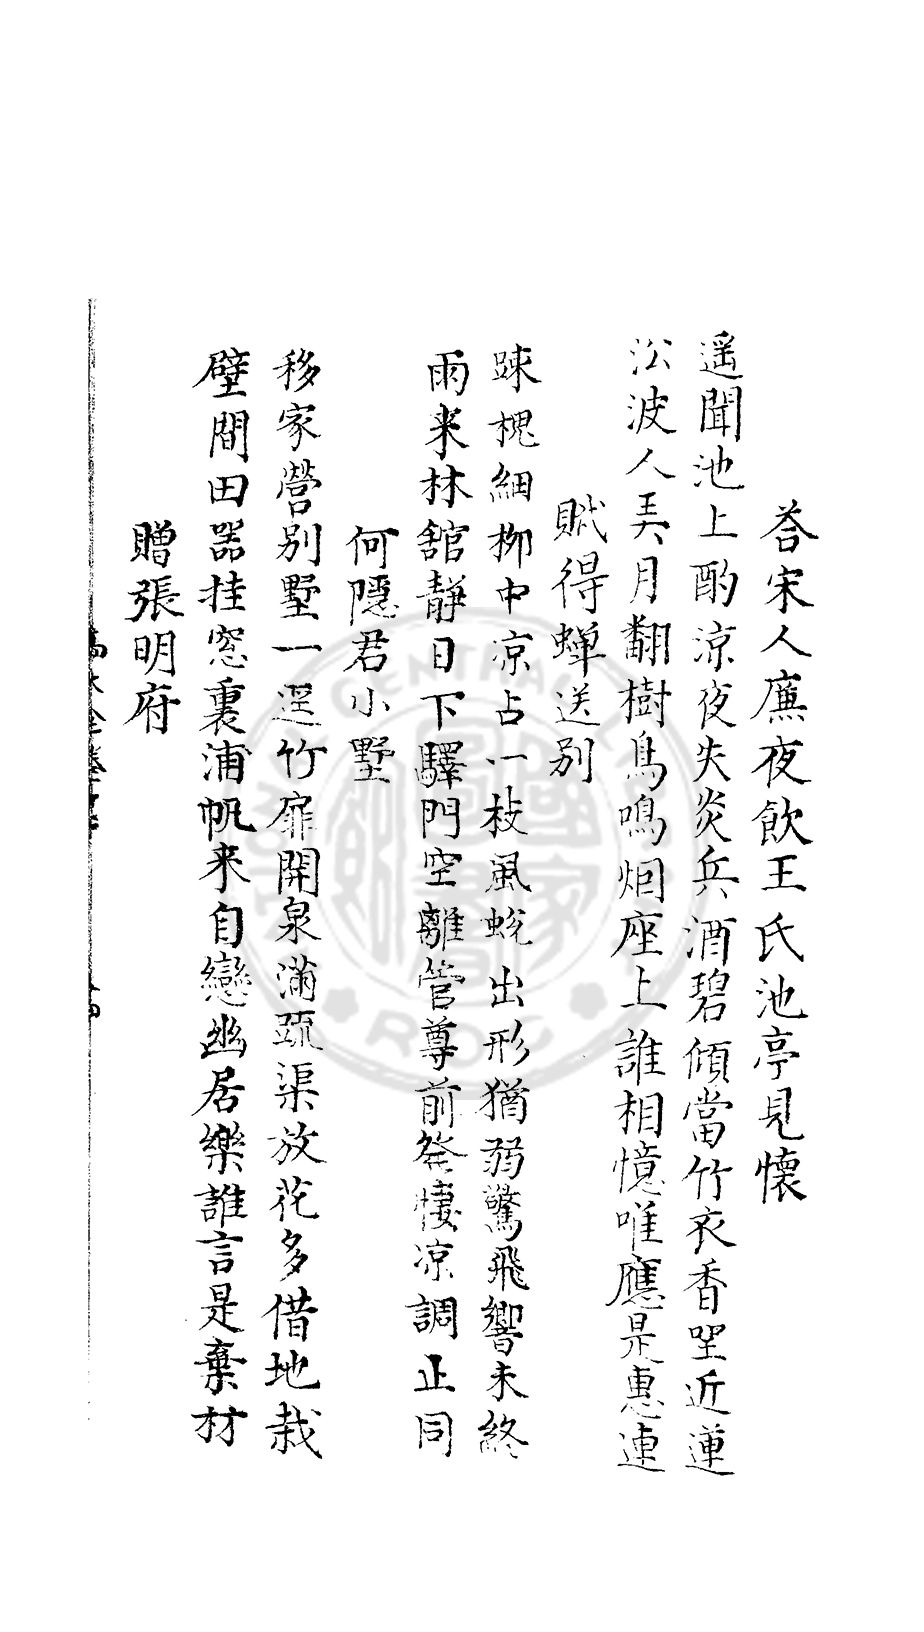 荅宋人廡夜飲王氏池亭見懷
遥聞池上酌凉夜失炎兵酒碧傾當竹衣香坐近蓮
㳂波人弄月翻樹鳥鳴烟座上誰相憶唯應是惠連
賦得蟬送别
踈槐細柳中凉占一枝風蛻出形猶弱驚飛響未終
雨来林舘靜日下驛門空離管尊前發悽凉調止同
何隱君小墅
移家營别墅一逕竹扉開泉滿疏渠放花多借地栽
壁間田器挂窓裏浦帆来自戀幽居樂誰言是棄材
贈張明府